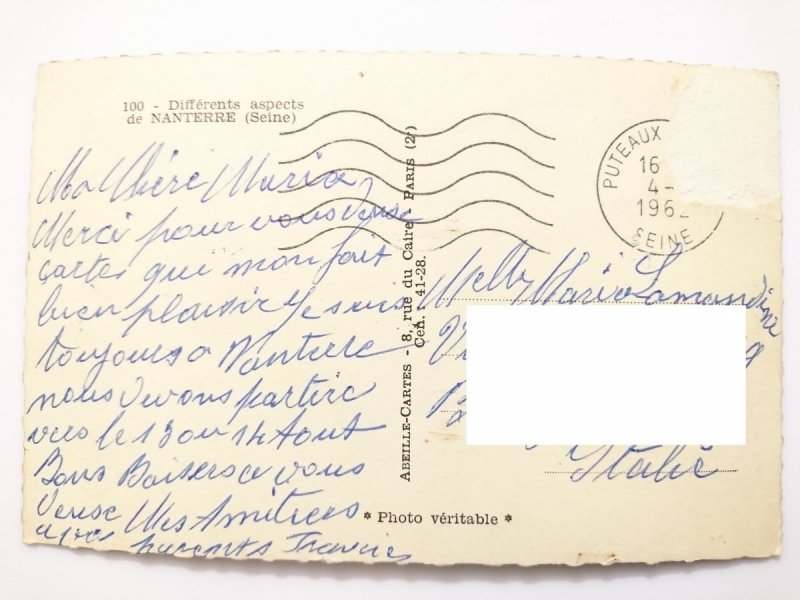 100 - Différents aspects
de NANTERRE (Seine)
Ma Chére Maria
Merci pour vous deuse
cartes qui mon fait
bien plaisir Je suis
toujours a Nanterre
nous devons partire
vers le 13 ou 14 Aout
Bons Baisers a vous
deuse Mes Amitiees
a vos parents
ABEILLE-CARTES - 8, rue du Caire - PARIS (2e)
Cen. 41-28.
* Photo véritable *
PUTEAUX
16
4-
196
SEINE
Melle Maria
Italie